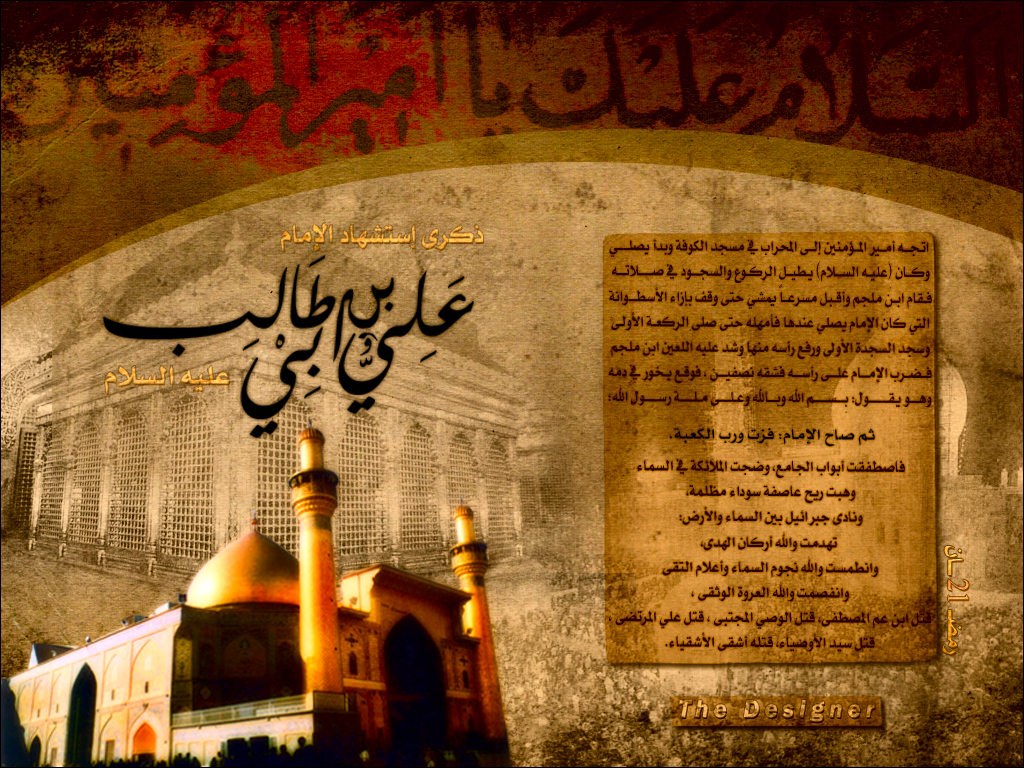 السَّلام عليك يا امير المؤمنين
ذكرى إستشهاد الإمام
عَلِيُّ بن ابِيْ طَالِب
عليه السلام
اتجه أمير المؤمنين إلى المحراب في مسجد الكوفة وبدأ يصلي
وكان (عليه السلام) يطيل الركوع والسجود في صلاته
فقام ابن ملجم وأقبل مسرعاً يمشي حتى وقف بإزاء الأسطوانة
التي كان الإمام يصلي عندها فأمهله حتى صلى الركعة الأولى
وسجد السجدة الأولى ورفع رأسه منها وشد عليه اللعين ابن ملجم
فضرب الإمام على رأسه فشقه نصفين ، فوقع يخور في دمه
وهو يقول: بسم الله وبالله وعلى ملة رسول الله؛
ثم صاح الإمام: فزت ورب الكعبة.
فاصطفقت أبواب الجامع، وضجت الملائكة في السماء
وهبت ريح عاصفة سوداء مظلمة،
ونادى جبرائيل بين السماء والأرض:
تهدمت والله أركان الهدى،
وانطمست والله نجوم السماء وأعلام التقى
وانفصمت والله العروة الوثقى ،
قتل ابن عم المصطفى، قتل الوصي المجتبى ، قتل علي المرتضى ،
قتل سيد الأوصياء، قتله أشقى الأشقياء.
21 رمضــان
The Designer